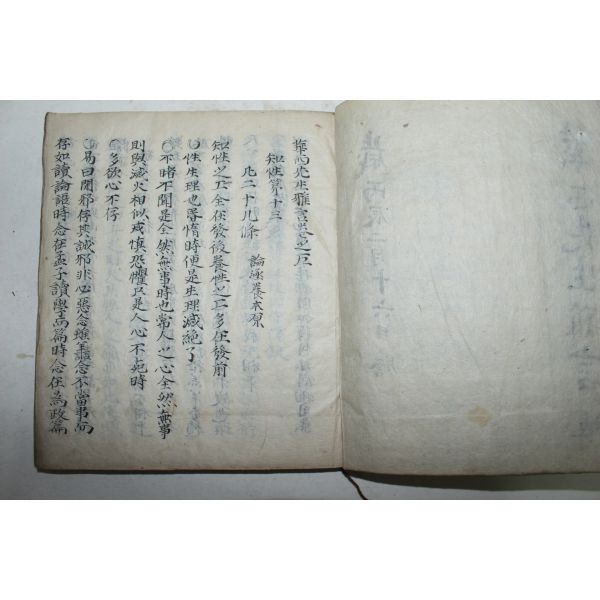 華西先生雅言卷之五
知性第十三
凡二十九條 論涵養本原
知性之工全在發後養性之工多在發前
○性生理也昏惰時便是生理滅絶了
○不睹不聞是全然無事時也常人之心全然無事
則與滅火相似戒愼恐懼只是人心不死時
○多欲心不存
○易曰閑邪存其誠邪非心惡念雖善念不當事而
存如讀論語時念在孟子讀學而篇時念在爲政篇